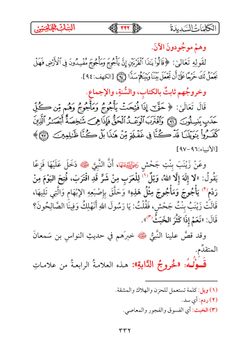 الكلمات السديدة
٣٣٢
وهم موجودون الآن.
لقوله تعالى: ﴿قَالُوا يَا ذَا الْقَرْنَيْنِ إِنَّ يَأْجُوجَ وَمَأْجُوجَ مُفْسِدُونَ فِي الْأَرْضِ فَهَلْ
نَجْعَلُ لَكَ خَرْجًا عَلَى أَنْ تَجْعَلَ بَيْنَنَا وَبَيْنَهُمْ سَدًّا﴾ [الكهف: ٩٤].
وخروجُهم ثابتٌ بالكتابِ، والسُّنة، والإجماعِ.
قال تعالى: ﴿حَتَّى إِذَا فُتِحَتْ يَأْجُوجُ وَمَأْجُوجُ وَهُمْ مِنْ كُلِّ
حَدَبٍ يَنْسِلُونَ ۝ وَاقْتَرَبَ الْوَعْدُ الْحَقُّ فَإِذَا هِيَ شَاخِصَةٌ أَبْصَارُ الَّذِينَ
كَفَرُوا يَا وَيْلَنَا قَدْ كُنَّا فِي غَفْلَةٍ مِنْ هَذَا بَلْ كُنَّا ظَالِمِينَ﴾
[الأنبياء: ٩٦-٩٧]
وعن زينب بنتِ جحشٍ أنَّ النبيَّ ﷺ دَخَلَ عَلَيْهَا فَزِعًا
يَقُولُ: «لا إِلَهَ إِلَّا اللهُ، وَيْلٌ(١) لِلْعَرَبِ مِنْ شَرٍّ قَدِ اقْتَرَبَ، فُتِحَ اليَوْمَ مِنْ
رَدْمِ(٢) يَأْجُوجَ وَمَأْجُوجَ مِثْلُ هَذِهِ» وَحَلَّقَ بِإِصْبَعِهِ الإِبْهَامِ وَالَّتِي تَلِيهَا،
قَالَتْ زَيْنَبُ بِنْتُ جَحْشٍ: فَقُلْتُ: يَا رَسُولَ اللهِ أَنَهْلِكُ وَفِينَا الصَّالِحُونَ؟
قَالَ: «نَعَمْ إِذَا كَثُرَ الخَبَثُ(٣)».
وقد قصَّ علينا النبيُّ ﷺ خبرَهم في حديثِ النواسِ بنِ سمعانَ
المتقدِّمِ.
قَوْلُهُ: «خُرُوجُ الدَّابَّةِ»: هذه العلامةُ الرابعةُ من علاماتِ
(١) ويل: كلمة تستعمل للحزن والهلاك والمشقة.
(٢) ردم: أي سد.
(٣) الخبث: أي الفسوق والفجور والمعاصي.
٣٣٢